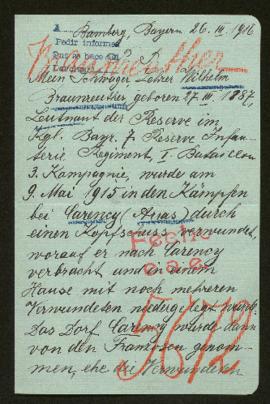 Bamberg, Bayern 26. III. 1916
A
Pedir informes
Braunreuther
Mein Schwager, Lehrer Wilhelm
Braunreuther, geboren 27. III. 1887,
Leutnant der Reserve im
Kgl. Bayr. 7 Reserve Infan-
terie Regiment, I. Bataillon
3. Kompagnie, wurde am
9. Mai 1915 in den Kämpfen
bei Carency Arras durch
einen Kopfschuss verwundet,
worauf er nach Carency
verbracht und in einem
Hause mit noch mehreren
Verwundeten niedergelegt wurde.
Das Dorf Carency wurde dann
von den Franzosen genom-
men, ehe die Verwundeten